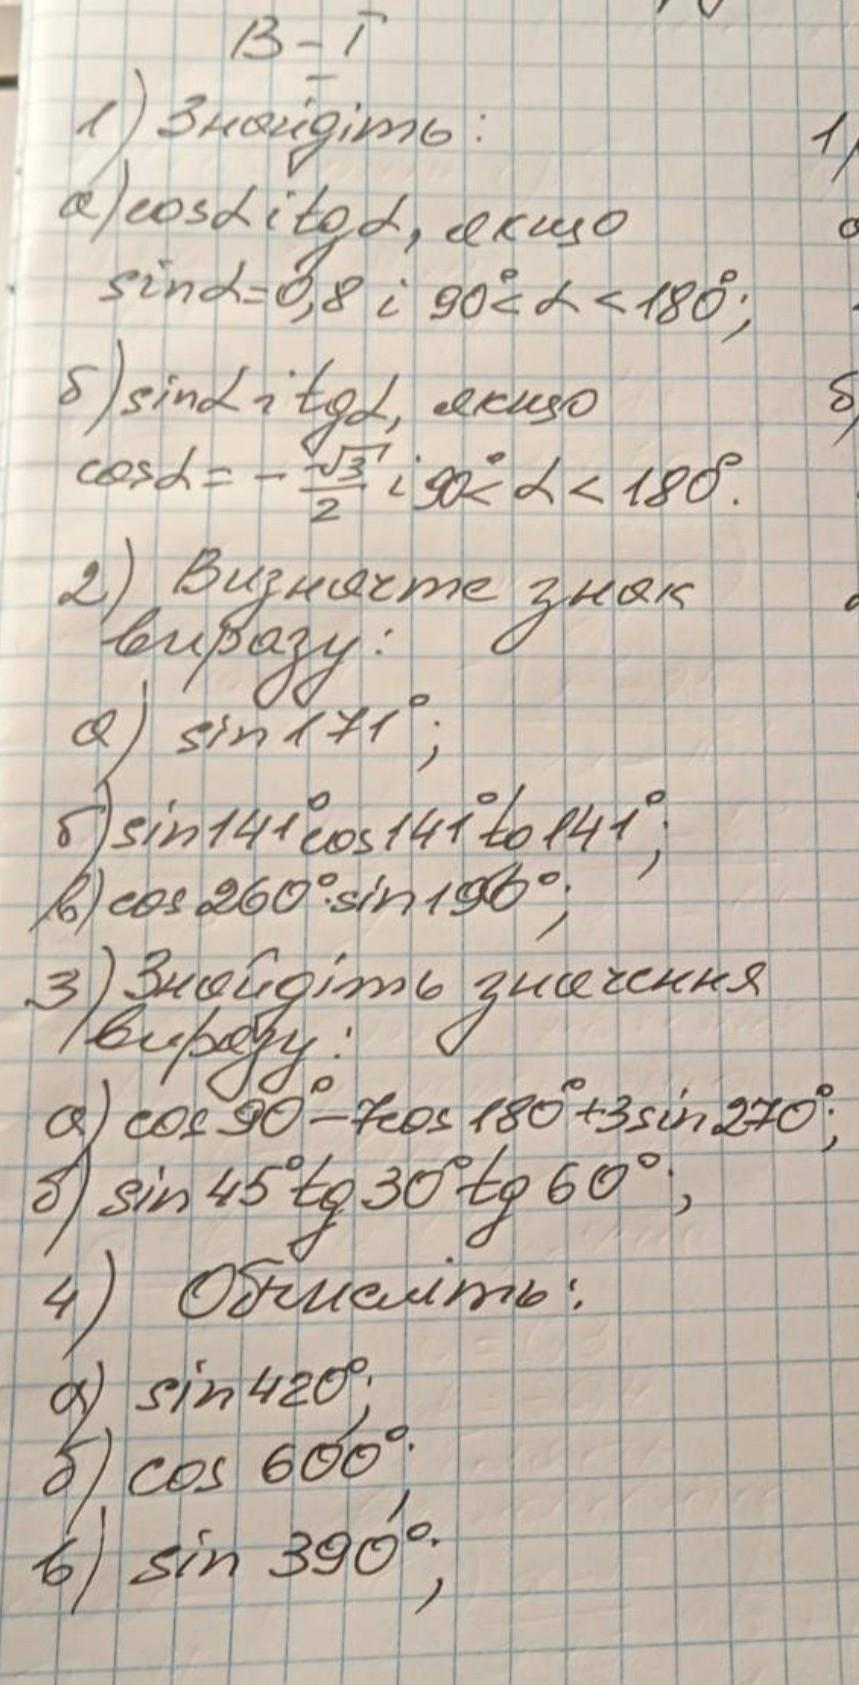 В-І
1) Знайдіть:
а) cosα і tgα, якщо
sinα=0,8 і 90°<α<180°;
б) sinα і tgα, якщо
cosα = -√3/2 і 90°<α<180°.
2) Визначте знак
виразу:
а) sin171°;
б) sin141°cos141°to141°;
в) cos260°·sin190°;
3) Знайдіть значення
виразу:
а) cos90°-7cos180°+3sin270°;
б) sin45°tg30°tg60°;
4) Обчисліть:
а) sin420°;
б) cos 600°;
в) sin 390°;
1)
б)